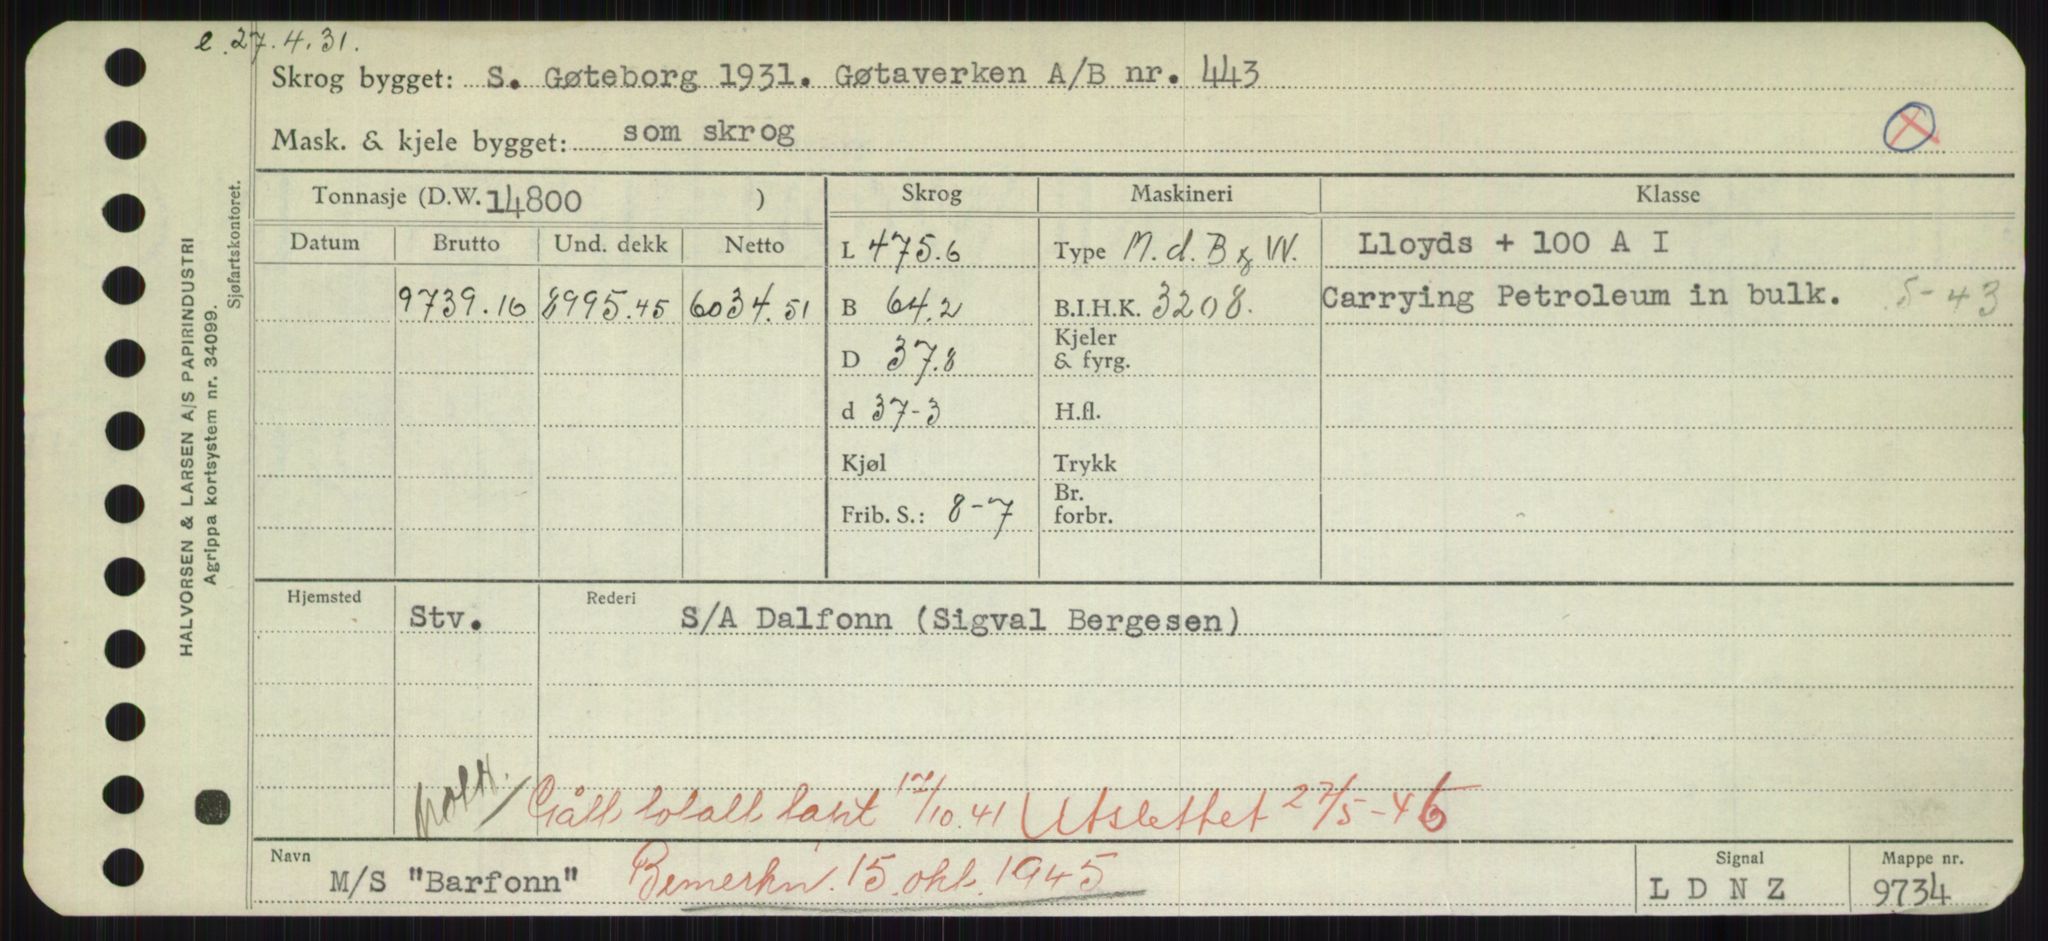 e. 27.4.31.
Skrog bygget: S. Gøteborg 1931. Gøtaverken A/B nr. 443
Mask. & kjele bygget: som skrog
Tonnasje (D.W. 14800 ) Skrog Maskineri Klasse
Datum Brutto Und. dekk Netto L 475.6 Type M.d. B & W. Lloyds + 100 A I
9739.16 8995.45 6034.51 B 64.2 B.I.H.K. 3208. Carrying Petroleum in bulk. 5-43
D 37.8 Kjeler & fyrg.
d 37-3 H.fl.
Kjøl Trykk
Frib. S.: 8-7 Br. forbr.
Hjemsted Stv. Rederi S/A Dalfonn (Sigval Bergesen)
Gått totalt tapt 17/10.41 Utslettet 27/5-46
Navn M/S "Barfonn" Bemerkn. 15. okt. 1945 Signal L D N Z Mappe nr. 9734
HALVORSEN & LARSEN A/S PAPIRINDUSTRI
Agrippa kortsystem nr. 34099.
Sjøfartskontoret.